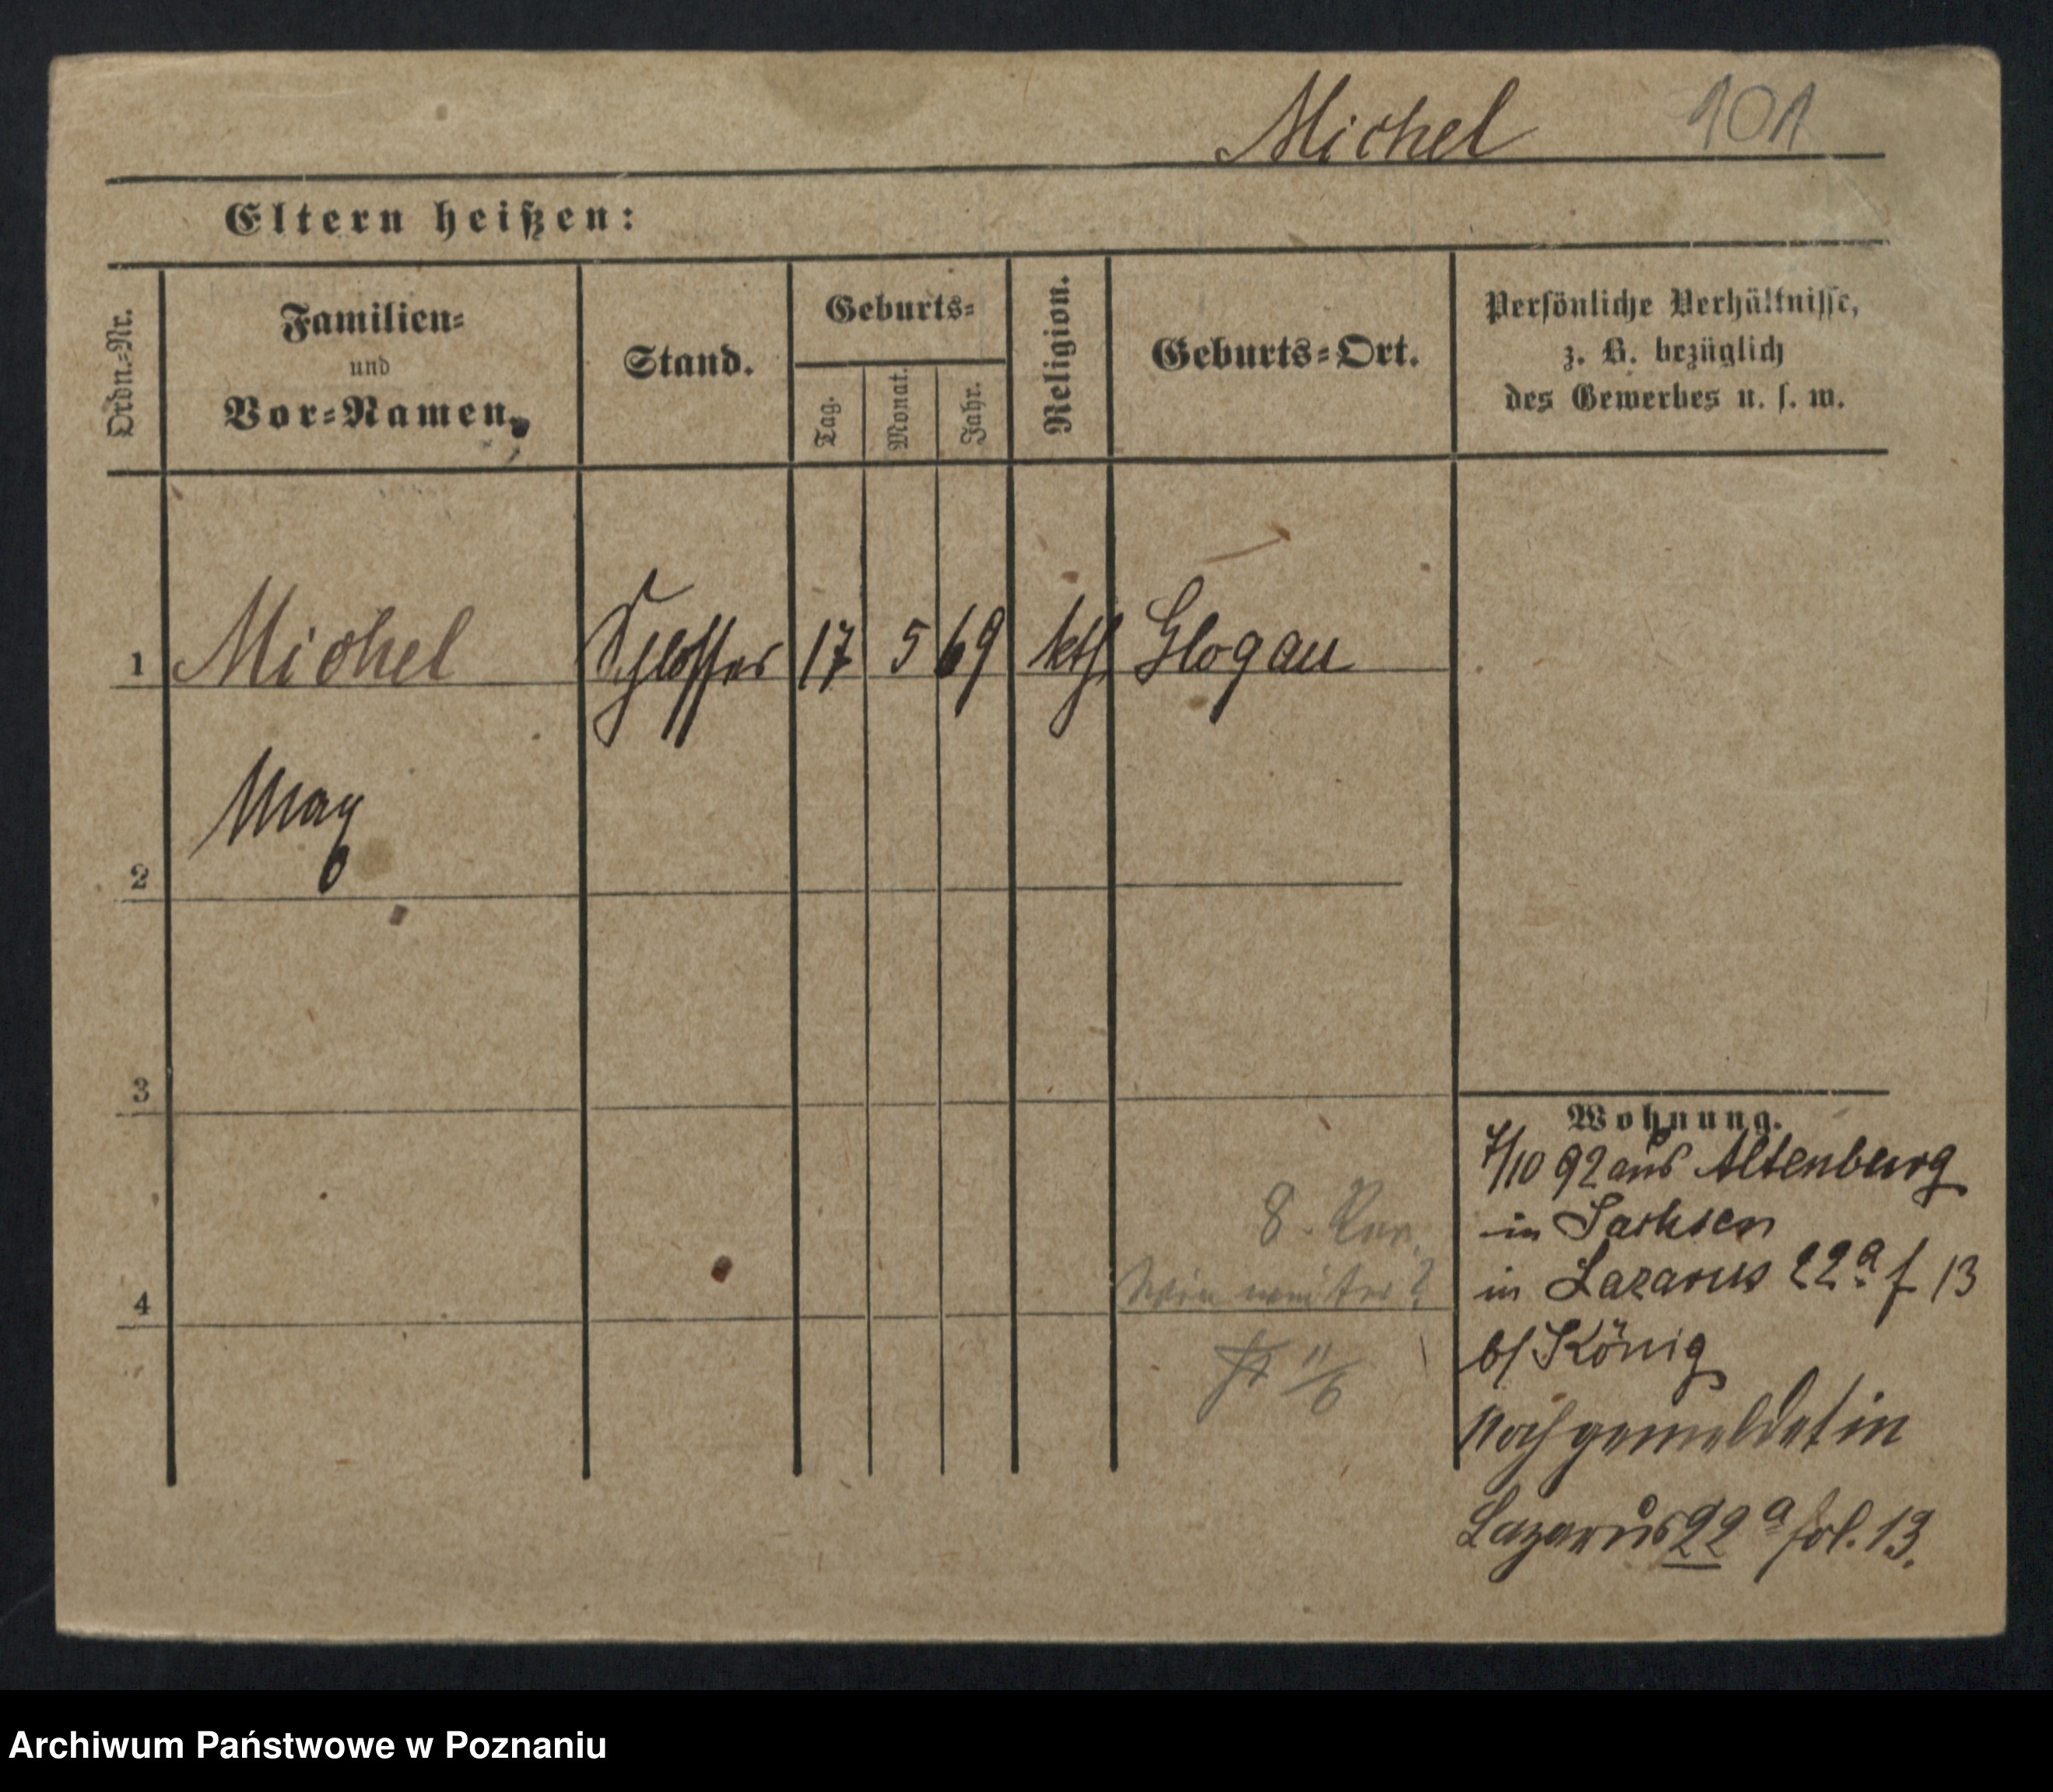 Michel 101
Eltern heißen:
Ordn.-Nr.
Familien-
und
Vor-Namen.
Stand.
Geburts-
Tag.
Monat.
Jahr.
Religion.
Geburts-Ort.
Persönliche Verhältnisse,
z. B. bezüglich
des Gewerbes u. s. w.
1 Michel Schlosser 17 5 69 kth. Glogau
Max
2
3
4
8.
Wie weiter?
11/6
Wohnung.
7/10 92 aus Altenburg
in Sachsen
in Lazarus 22a f 13
b/ König
Noch gemeldet in
Lazarus 22a fol. 13.
Archiwum Państwowe w Poznaniu